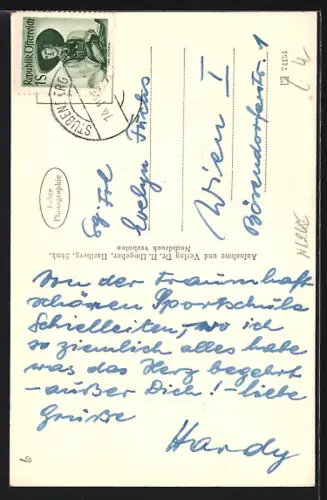 Republik Österreich
1 S
STUBENBERG
Echte
Photographie
Aufnahme und Verlag Dr. H. Ungeher, Hartberg, Stmk.
Nachdruck verboten
74154
Evelyn Fuchs
Wien I
Bösendorferstr. 1
Von der traumhaft
schönen Sportschule
Schielleiten, wo ich
so ziemlich alles habe
was das Herz begehrt
- außer Dich! - liebe
Grüße
Hardy